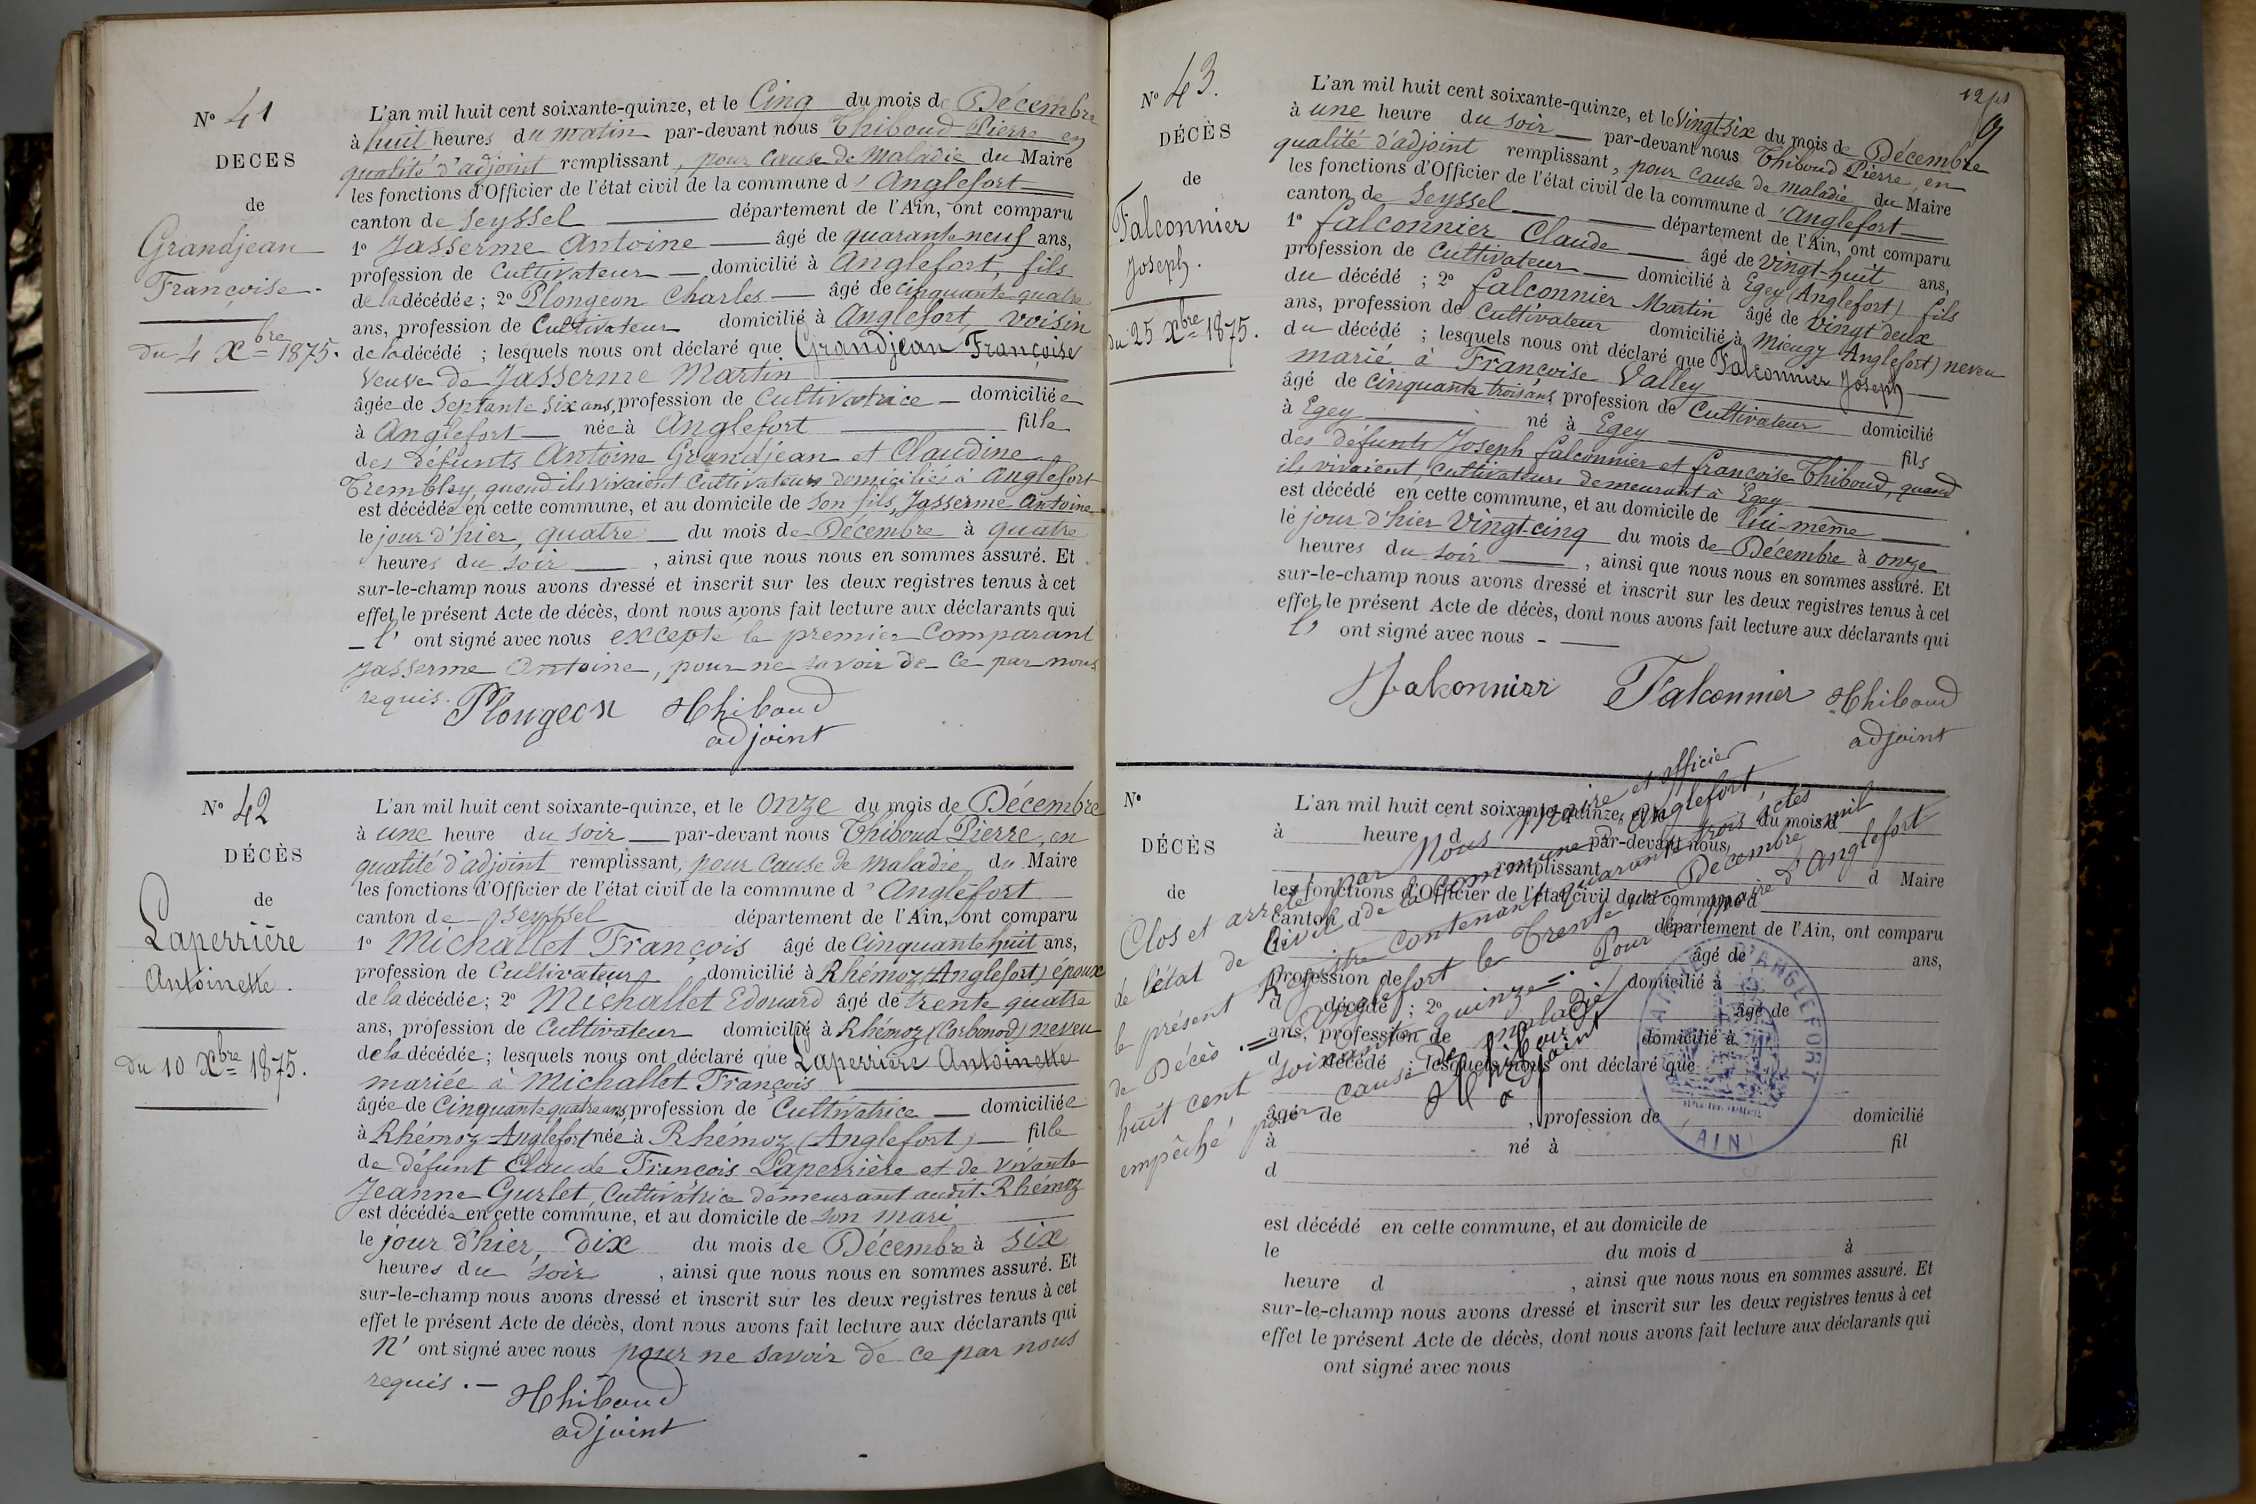 N° 41
DECES
de
Grandjean
Françoise.
du 4 Xbre 1875.
L'an mil huit cent soixante-quinze, et le Cinq du mois de Décembre
à huit heures du matin par-devant nous Thiboud Pierre en
qualité d'adjoint remplissant, pour cause de maladie du Maire
les fonctions d'Officier de l'état civil de la commune d'Anglefort
canton de Seyssel département de l'Ain, ont comparu
1° Jasserme Antoine âgé de quarante neuf ans,
profession de Cultivateur domicilié à Anglefort, fils
de la décédée ; 2° Plongeon Charles âgé de Cinquante quatre
ans, profession de Cultivateur domicilié à Anglefort, voisin
de la décédé ; lesquels nous ont déclaré que Grandjean Françoise
veuve de Jasserme Martin
âgée de Septante Six ans, profession de Cultivatrice domiciliée
à Anglefort née à Anglefort fille
des défunts Antoine Grandjean et Claudine
Trembley, quand ils vivaient Cultivateurs domiciliés à Anglefort
est décédée en cette commune, et au domicile de son fils, Jasserme Antoine
le jour d'hier, quatre du mois de Décembre à quatre
heures du soir , ainsi que nous nous en sommes assuré. Et
sur-le-champ nous avons dressé et inscrit sur les deux registres tenus à cet
effet le présent Acte de décès, dont nous avons fait lecture aux déclarants qui
l' ont signé avec nous excepté le premier Comparant
Jasserme Antoine, pour ne savoir de ce par nous
requis.
Plongeon Thiboud
adjoint
N° 42
DÉCÈS
de
Laperrière
Antoinette.
du 10 Xbre 1875.
L'an mil huit cent soixante-quinze, et le onze du mois de Décembre
à une heure du soir par-devant nous Thiboud Pierre, en
qualité d'adjoint remplissant, pour cause de maladie du Maire
les fonctions d'Officier de l'état civil de la commune d'Anglefort
canton de Seyssel département de l'Ain, ont comparu
1° Michallet François âgé de Cinquante huit ans,
profession de Cultivateur domicilié à Rhémoz (Anglefort) époux
de la décédée ; 2° Michallet Edouard âgé de trente quatre
ans, profession de Cultivateur domicilié à Rhémoz (Corbonod) neveu
de la décédée ; lesquels nous ont déclaré que Laperrière Antoinette
mariée à Michallet François
âgée de Cinquante quatre ans, profession de Cultivatrice domiciliée
à Rhémoz Anglefort née à Rhémoz (Anglefort) fille
de défunt Claude François Laperrière et de vivante
Jeanne Gurlet, Cultivatrice demeurant audit Rhémoz
est décédée en cette commune, et au domicile de son mari
le jour d'hier, dix du mois de Décembre à six
heures du soir , ainsi que nous nous en sommes assuré. Et
sur-le-champ nous avons dressé et inscrit sur les deux registres tenus à cet
effet le présent Acte de décès, dont nous avons fait lecture aux déclarants qui
n' ont signé avec nous pour ne savoir de ce par nous
requis.
Thiboud
adjoint
N° 43.
DÉCÈS
de
Falconnier
Joseph.
du 25 Xbre 1875.
L'an mil huit cent soixante-quinze, et le Vingt-six du mois de Décembre
à une heure du soir par-devant nous Thiboud Pierre, en
qualité d'adjoint remplissant, pour cause de maladie du Maire
les fonctions d'Officier de l'état civil de la commune d'Anglefort
canton de Seyssel département de l'Ain, ont comparu
1° falconnier Claude âgé de Vingt-huit ans,
profession de Cultivateur domicilié à Egey (Anglefort) fils
du décédé ; 2° falconnier Martin âgé de Vingt deux
ans, profession de Cultivateur domicilié à Mieugy Anglefort) neveu
du décédé ; lesquels nous ont déclaré que Falconnier Joseph
marié à Françoise Valley
âgé de cinquante trois ans profession de Cultivateur domicilié
à Egey né à Egey fils
des défunts Joseph falconnier et françoise Thiboud, quand
ils vivaient, Cultivateurs demeurant à Egey
est décédé en cette commune, et au domicile de lui-même
le jour d'hier Vingt-cinq du mois de Décembre à onze
heures du soir , ainsi que nous nous en sommes assuré. Et
sur-le-champ nous avons dressé et inscrit sur les deux registres tenus à cet
effet le présent Acte de décès, dont nous avons fait lecture aux déclarants qui
l' ont signé avec nous
Falconnier Falconnier Thiboud
adjoint
N°
DÉCÈS
de
L'an mil huit cent soixante-quinze, et le du mois d
à heure d par-devant nous
remplissant d Maire
les fonctions d'Officier de l'état civil de la commune d
canton d département de l'Ain, ont comparu
âgé de ans,
profession de domicilié à
d décédé ; 2° âgé de
ans, profession de domicilié à
d décédé ; lesquels nous ont déclaré que
âgé de , profession de domicilié
à né à fil
d
est décédé en cette commune, et au domicile de
le du mois d à
heure d , ainsi que nous nous en sommes assuré. Et
sur-le-champ nous avons dressé et inscrit sur les deux registres tenus à cet
effet le présent Acte de décès, dont nous avons fait lecture aux déclarants qui
ont signé avec nous
Clos et arrêté par Nous Maire et officier
de l'état Civil de la commune d'Anglefort,
le présent Registre contenant quarante trois actes
de Décès. Anglefort le Trente un Décembre mil
huit cent soixante quinze. Pour maire d'Anglefort
empêché pour cause de maladie
Thiboud
adjoint
MAIRIE D'ANGLEFORT
(AIN)